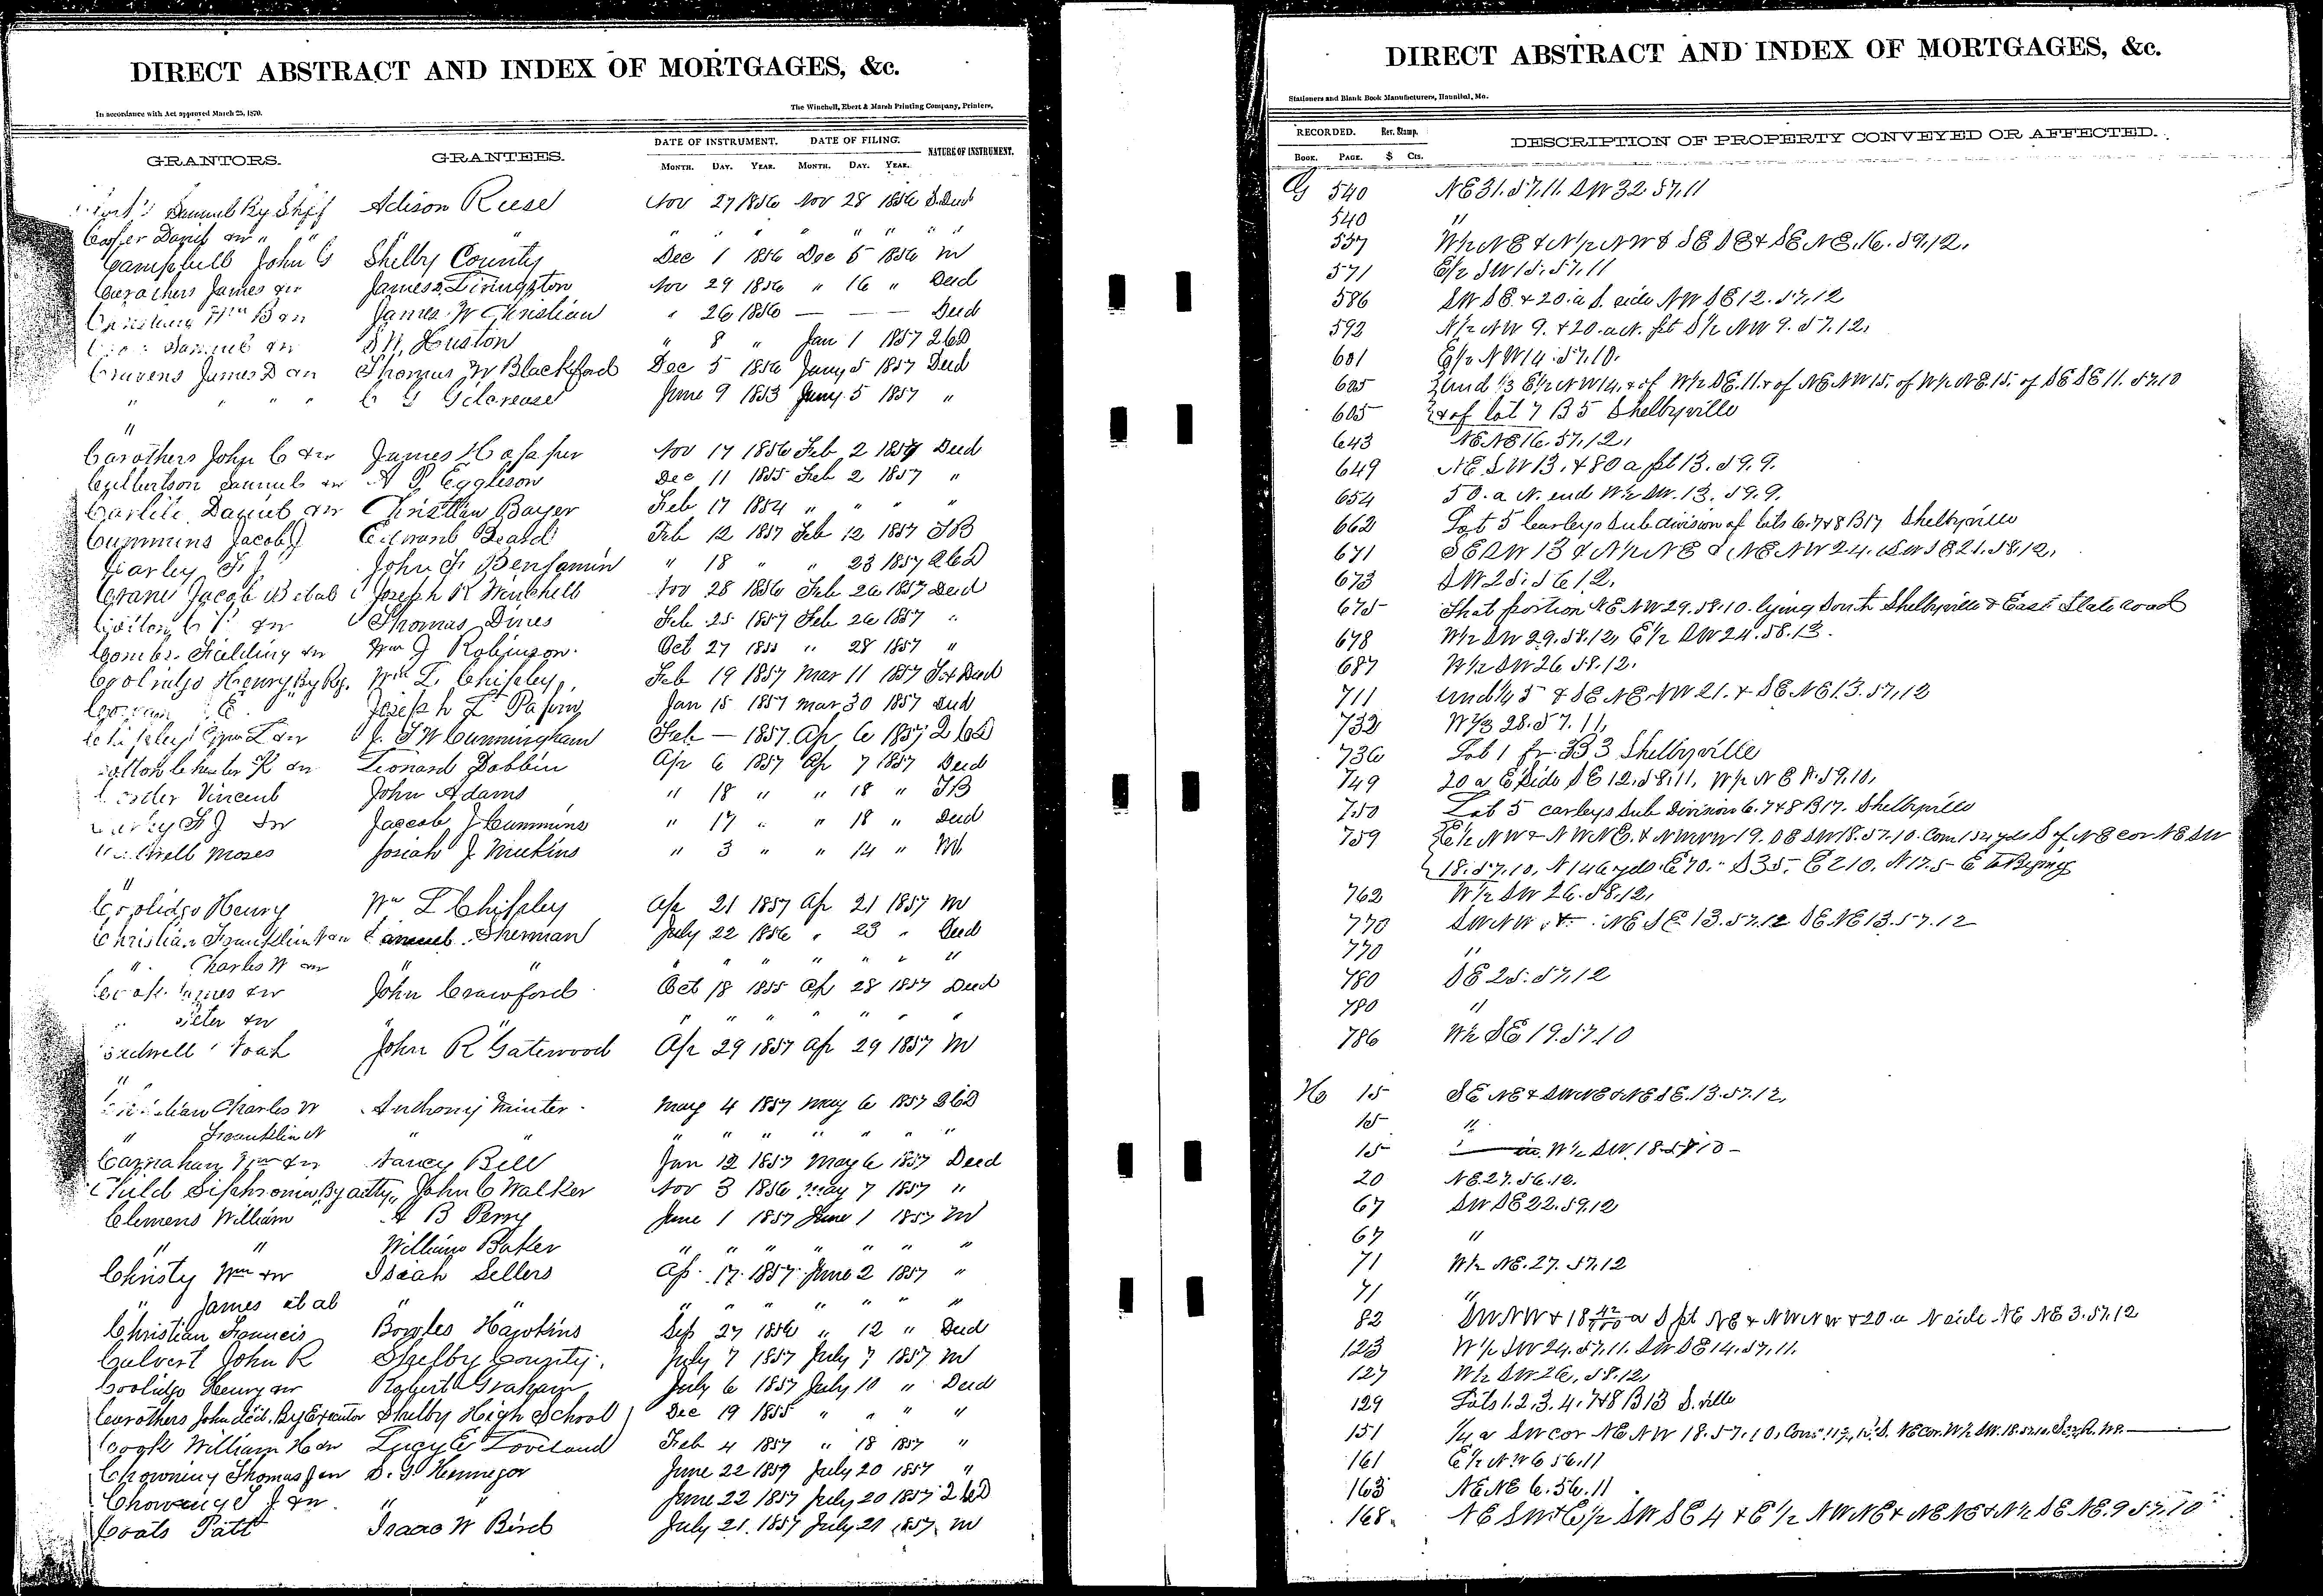 DIRECT ABSTRACT AND INDEX OF MORTGAGES, &c.
In accordance with Act approved March 25, 1870.
The Winchell, Ebert & Marsh Printing Company, Printers,
GRANTORS. GRANTEES. DATE OF INSTRUMENT. DATE OF FILING. NATURE OF INSTRUMENT.
MONTH. DAY. YEAR. MONTH. DAY. YEAR.
Samuel By Shff Adison Reese Nov 27 1856 Nov 28 1856 S. Deed
" " " " " " " " "
Campbell John G Shelby County Dec 1 1856 Dec 5 1856 M
James &w James Livingston Nov 29 1856 " 16 " Deed
James W Christian " 26 1856 — — Deed
Samuel &w Huston " 8 " Jan 1 1857 
Cravens James D &w Thomas W Blackford Dec 5 1856 Jany 5 1857 Deed
" " " " C G Gilcrease June 9 1853 Jany 5 1857 "
"
Carothers John C &w Nov 17 1856 Feb 2 1857 Deed
Culbertson Samuel &w A P Eggleson Dec 11 1855 Feb 2 1857 "
Carlile Daniel &w Christian Bayer Feb 17 1854 " " " "
Cummins Jacob J Edward Beard Feb 12 1857 Feb 12 1857 TB
Carley F J John F Benjamin " 18 " " 23 1857
Crane Jacob B et al Joseph R Winchell Nov 28 1856 Feb 26 1857 Deed
&w Thomas Dines Feb 25 1857 Feb 26 1857 "
Combs Fielding &w Wm J Robinson Oct 27 1855 " 28 1857 "
Coolidge Henry By Wm L Chipley Feb 19 1857 Mar 11 1857 Deed
Joseph L Jan 15 1857 Mar 30 1857 Deed
Chipley Wm L &w J W Cunningham Feb — 1857 Ap 6 1857
&w Leonard Dobbin Ap 6 1857 Ap 7 1857 Deed
Vincent John Adams " 18 " " 18 " TB
Carley F J &w Jaccob J Cummins " 17 " " 18 " Deed
Moses Josiah J " 3 " " 14 " M
"
Coolidge Henry Wm L Chipley Ap 21 1857 Ap 21 1857 M
Christian Franklin N &w Samuel Sherman July 22 1856 " 23 " Deed
" Charles W &w " " " " " " " " "
James &w John Crawford Oct 18 1855 Ap 28 1857 Deed
" Peter &w " " " " " " "
Noah John R Gatewood Ap 29 1857 Ap 29 1857 M
"
Christian Charles W Anthony Minter May 4 1857 May 6 1857
" Franklin N " " " " " " " " "
Carnahan Wm &w Nancy Bell Jan 12 1857 May 6 1857 Deed
Child By atty John C Walker Nov 3 1856 May 7 1857 "
Clemens William A B Perry June 1 1857 June 1 1857 M
" " William Baker " " " " " " "
Christy Wm &w Isiah Sellers Ap 17 1857 June 2 1857 "
" James et al " " " " " " " " "
Christian Francis Bowles Hawkins Sep 27 1856 " 12 " Deed
Culvert John R Shelby County July 7 1857 July 7 1857 M
Coolidge Henry &w Robert Graham July 6 1857 July 10 " Deed
Carothers John decd. By Executor Shelby High School Dec 19 1855 " " " "
Cook William H &w Lucy E Loveland Feb 4 1857 " 18 1857 "
Chowning Thomas J &w June 22 1857 July 20 1857 "
Chowning T J &w " " June 22 1857 July 20 1857
Coats Patt Isaac W Bird July 21 1857 July 21 1857 M
DIRECT ABSTRACT AND INDEX OF MORTGAGES, &c.
Stationers and Blank Book Manufacturers, Hannibal, Mo.
RECORDED. Rev. Stamp. DESCRIPTION OF PROPERTY CONVEYED OR AFFECTED.
BOOK. PAGE. $ Cts.
G 540 NE 31.57.11. SW 32.57.11
540 "
557 W½ NE & N½ NW & SE SE & SE NE.16.59.12.
571 E½ SW 15.57.11
586 SW SE & 20 a S. side NW SE 12.57.12
592 N½ NW 9. & 20 a N. pt S½ NW 9.57.12.
601 E½ NW 14.57.10.
605 und ⅓ E½ NW 14. & of W½ SE.11. & of NE NW 15. of W½ NE.15. of SE SE 11.57.10
605 & of lot 7 B 5 Shelbyville
643 NE NE 16.57.12.
649 NE SW 13. & 80 a pt 13.59.9.
654 50 a N. end W½ SW.13.59.9.
662 Lot 5 Carleys Subdivision of lots 6.7&8 B17 Shelbyville
671 SE SW 13 & N½ NE & NE NW 24. 21.58.12.
673 SW 25.56.12.
675 That portion NE NW 29.58.10. lying South Shelbyville & East State road
678 W½ SW 29.58.12, E½ SW 24.58.13.
687 W½ SW 26 58.12.
711 und 1/4 5 & SE NE NW 21. & SE NE 13.57.12
732 28.57.11,
736 Lot 1 fr B 3 Shelbyville
749 20 a E Side SE 12.58.11, W½ NE 59.10,
750 Lot 5 carleys Sub Division 6.7&8 B17. Shelbyville
759 E½ NW & NW NE. & NW NW 19. SE SW 18.57.10. Com 154 yds S of NE cor NE SW
18.57.10, N 146 yds. E 70. S 35, E 210, N 17.5 E to Begining
762 W½ SW 26.58.12,
770 SW NW & NE SE 13.57.12 SE NE 13.57.12
770 "
780 SE 25.57.12
780 "
786 W½ SE 19.57.10
H 15 SE NE & SW NE & NE SE.13.57.12,
15 "
15 W½ SW.18.58.10 -
20 NE.27.56.12.
67 SW SE 22.59.12
67 "
71 W½ NE.27.57.12
71 "
82 SW NW & 18 42/100 a S pt NE & NW NW & 20 a N side NE NE 3.57.12
123 W½ SW 24.57.11. SW SE 14.57.11.
127 W½ SW 26.58.12,
129 Lots 1.2.3.4.7&8 B13 S.ville
151 1/4 a SW cor NE NW 18.57.10,
161 E½ NW 6 56.11
163 NE NE 6.56.11
168. NE SW & E½ SW SE 4 & E½ NW NE & NE NE & N½ SE NE.9 57.10